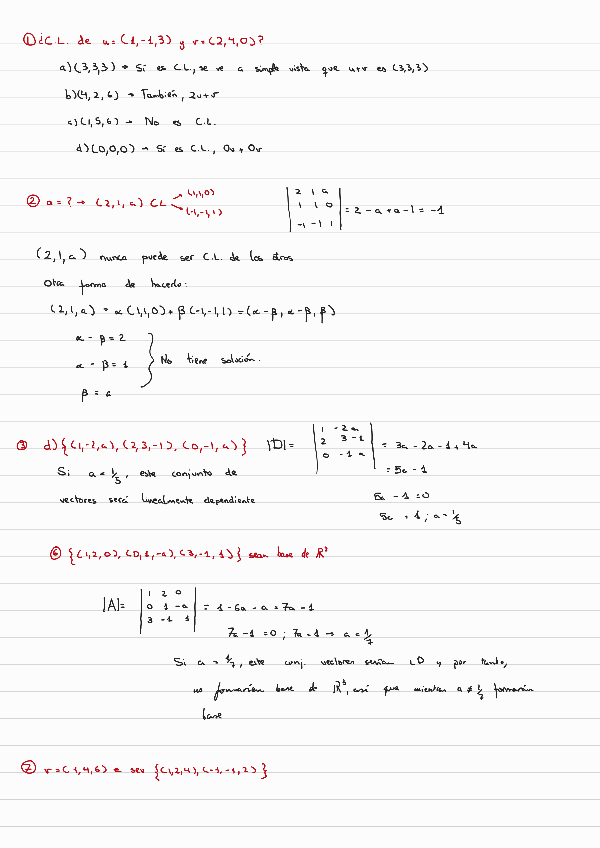 ① ¿C.L. de u=(1,-1,3) y v=(2,4,0)?
a)(3,3,3) → Si es C.L., se ve a simple vista que u+v es (3,3,3)
b)(4,2,6) → También, 2u+v
c)(1,5,6) → No es C.L.
d)(0,0,0) → Si es C.L., 0u + 0v
② a = ? → (2,1,a) CL (1,1,0) (-1,-1,1)
| 2 1 a |
| 1 1 0 | = 2 - a + a - 1 = -1
| -1 -1 1 |
(2,1,a) nunca puede ser C.L. de los otros
Otra forma de hacerlo:
(2,1,a) = α(1,1,0) + β(-1,-1,1) = (α-β, α-β, β)
α - β = 2
α - β = 1 } No tiene solución.
β = a
③ d) {(1,-2,a), (2,3,-1), (0,-1,a)} |D| =
| 1 -2 a |
| 2 3 -1 | = 3a - 2a - 1 + 4a
| 0 -1 a | = 5a - 1
Si a = 1/5, este conjunto de
vectores será linealmente dependiente
5a - 1 = 0
5a = 1 ; a = 1/5
⑥ {(1,2,0), (0,1,-a), (3,-1,1)} sean base de R³
|A| =
| 1 2 0 |
| 0 1 -a | = 1 - 6a - a = 7a - 1
| 3 -1 1 |
7a - 1 = 0 ; 7a = 1 → a = 1/7
Si a = 1/7, este conj. vectores serían LD y por tanto,
no formarían base de R³, así que mientras a ≠ 1/7 formarán
base
⑦ v = (1,4,6) e sev {(1,2,4), (-1,-1,2)}